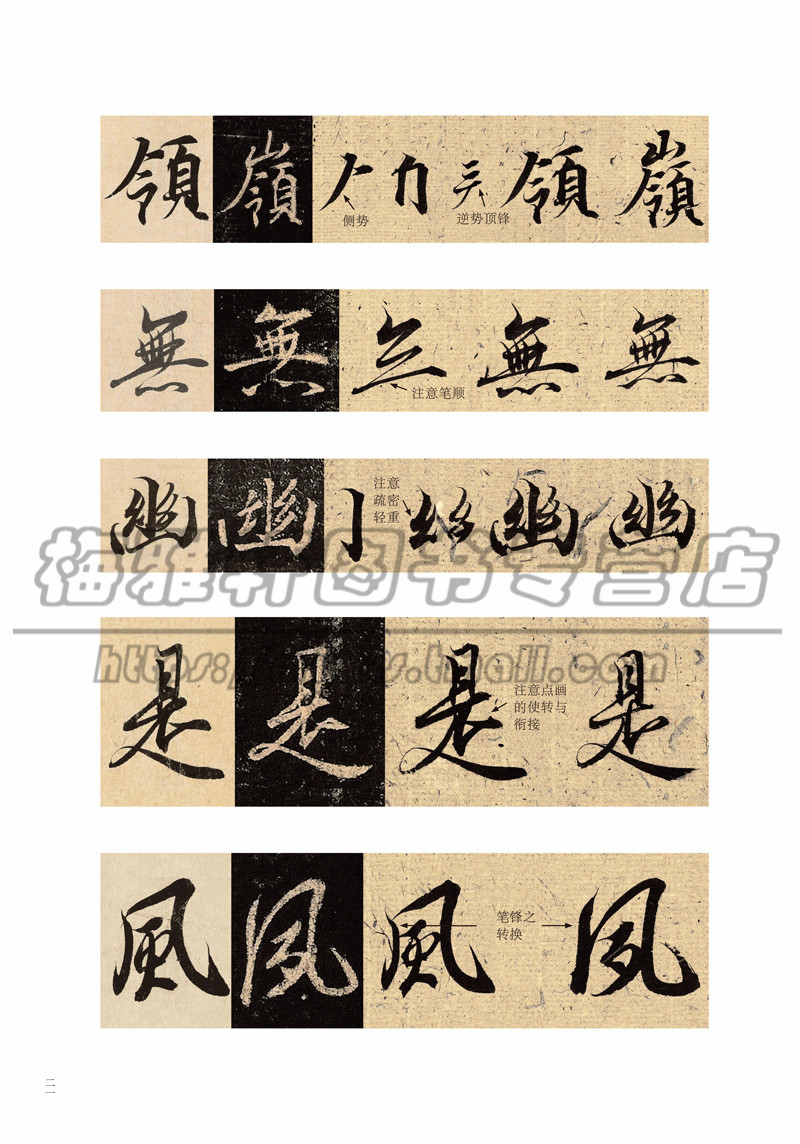 領 嶺 領 嶺
侧势
逆势顶锋
無 無 無 無
注意笔顺
幽 幽 幽 幽
注意
疏密
轻重
梅雅轩图书专营店
是 是 是 是
注意点画
的使转与
衔接
風 風 風 風
笔锋之
转换
二一